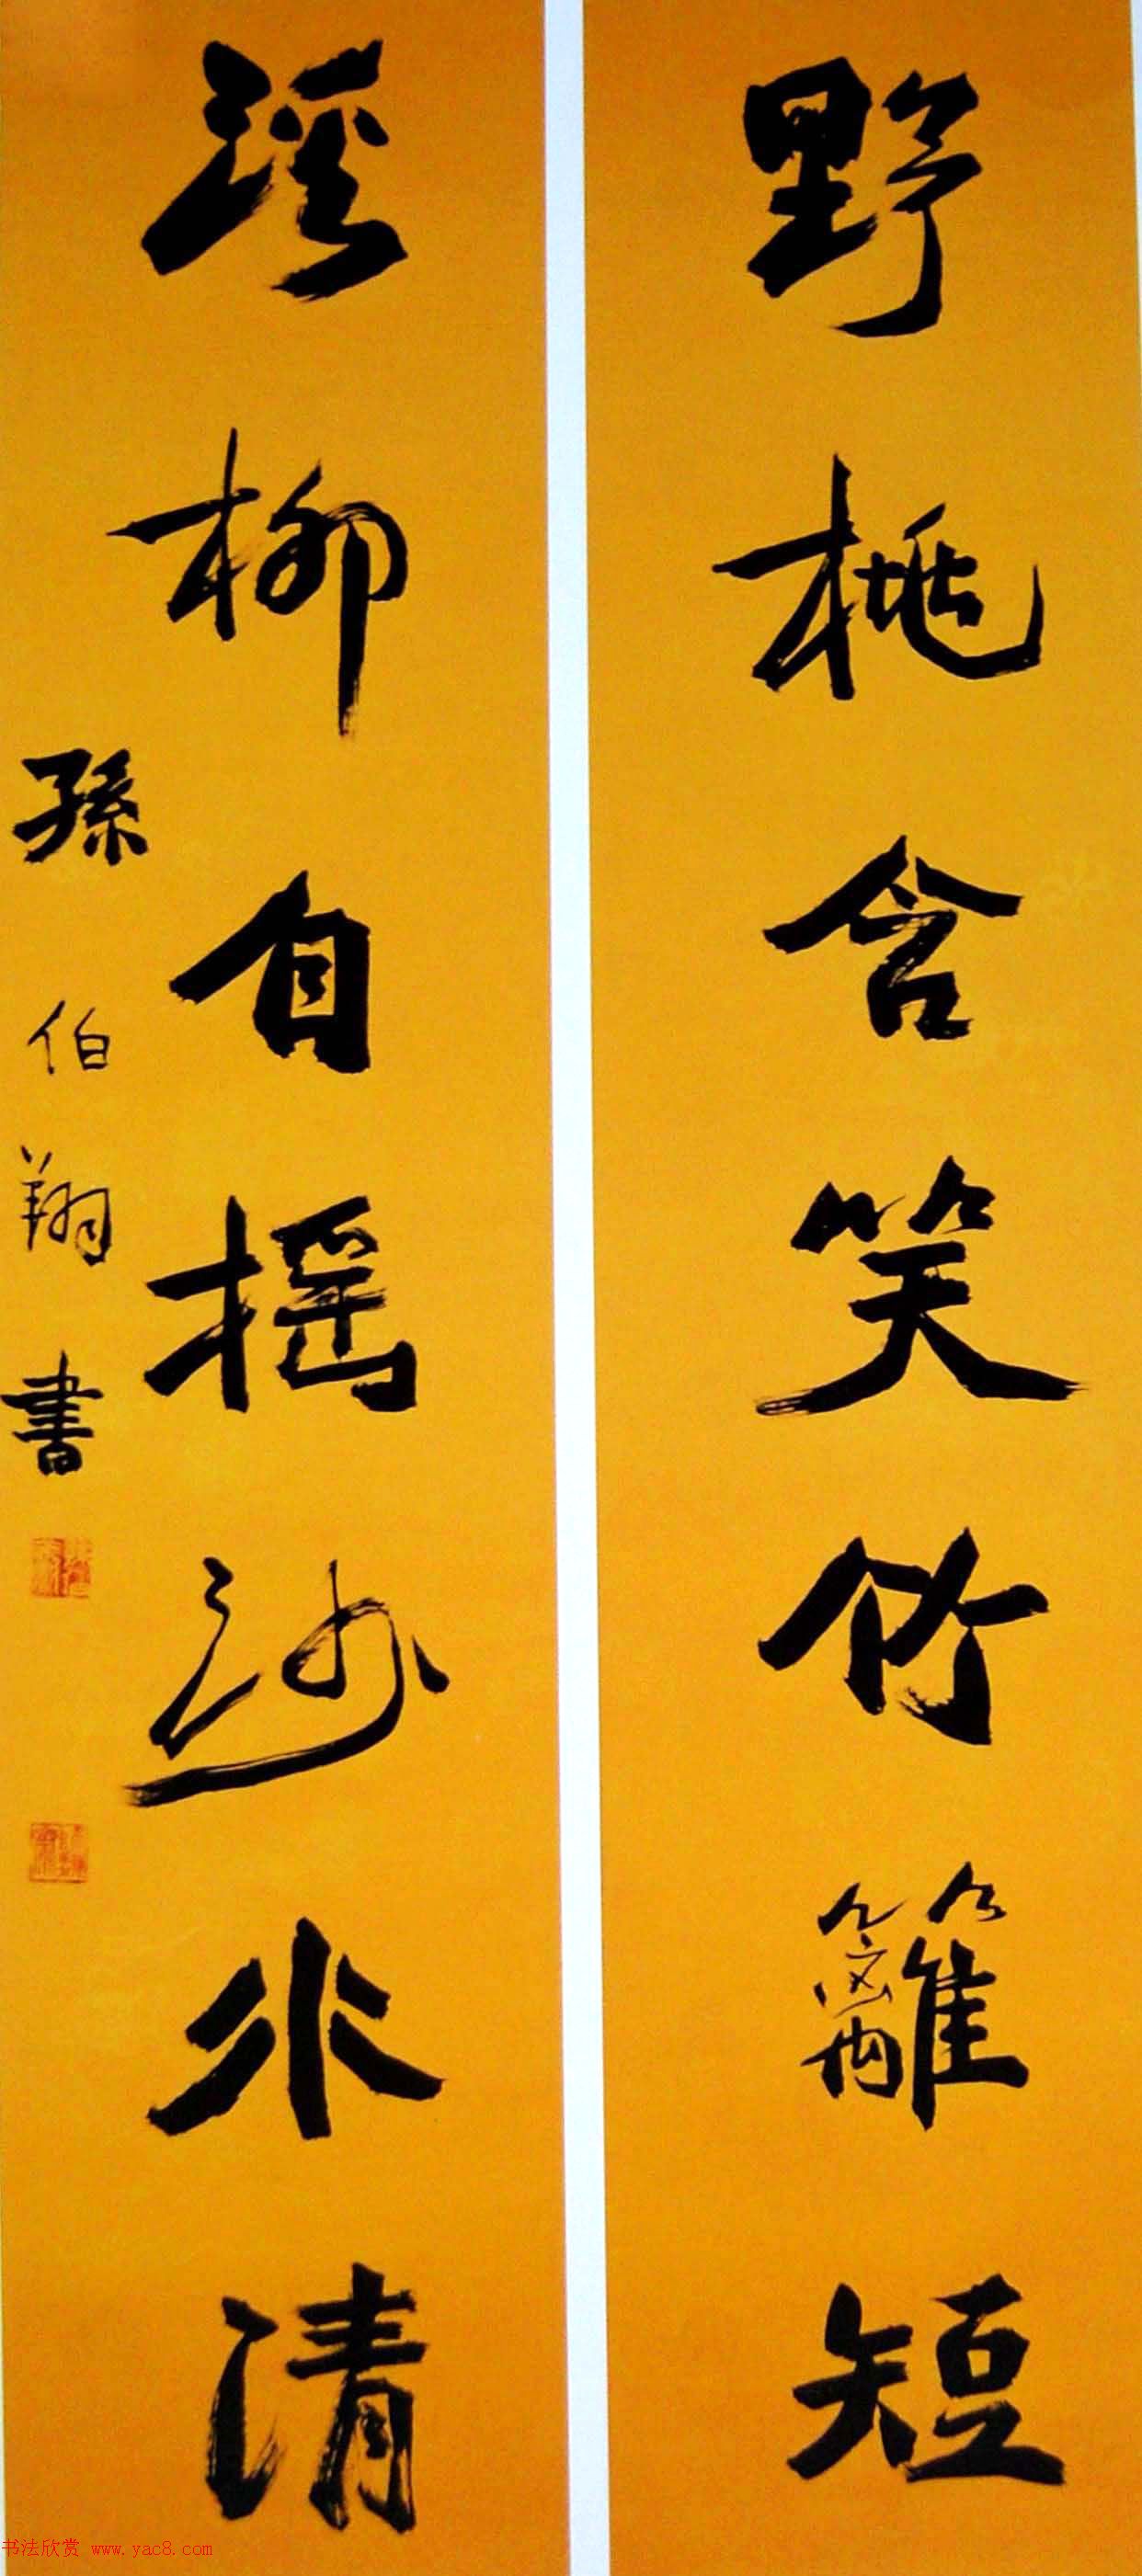 野桃含笑竹籬短
溪柳自摇沙水清
孫伯翔書
书法欣赏 www.yac8.com